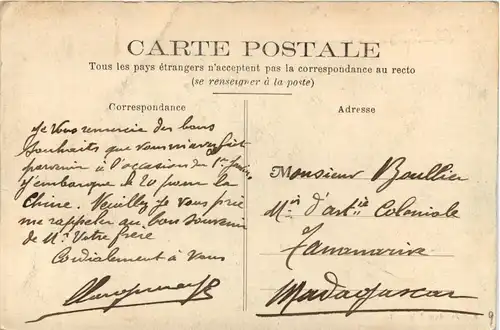 CARTE POSTALE
Tous les pays étrangers n'acceptent pas la correspondance au recto
(se renseigner à la poste)
Correspondance
Je vous remercie des bons
souhaits que vous m'avez fait
parvenir à l'occasion du 1er Janvier
J'embarque le 20 pour la
Chine. Veuillez je vous prie
me rappeler au bon souvenir
de Mr Votre frère
Cordialement à vous
Adresse
Monsieur Boullier
d'artie Coloniale
Tananarive
Madagascar